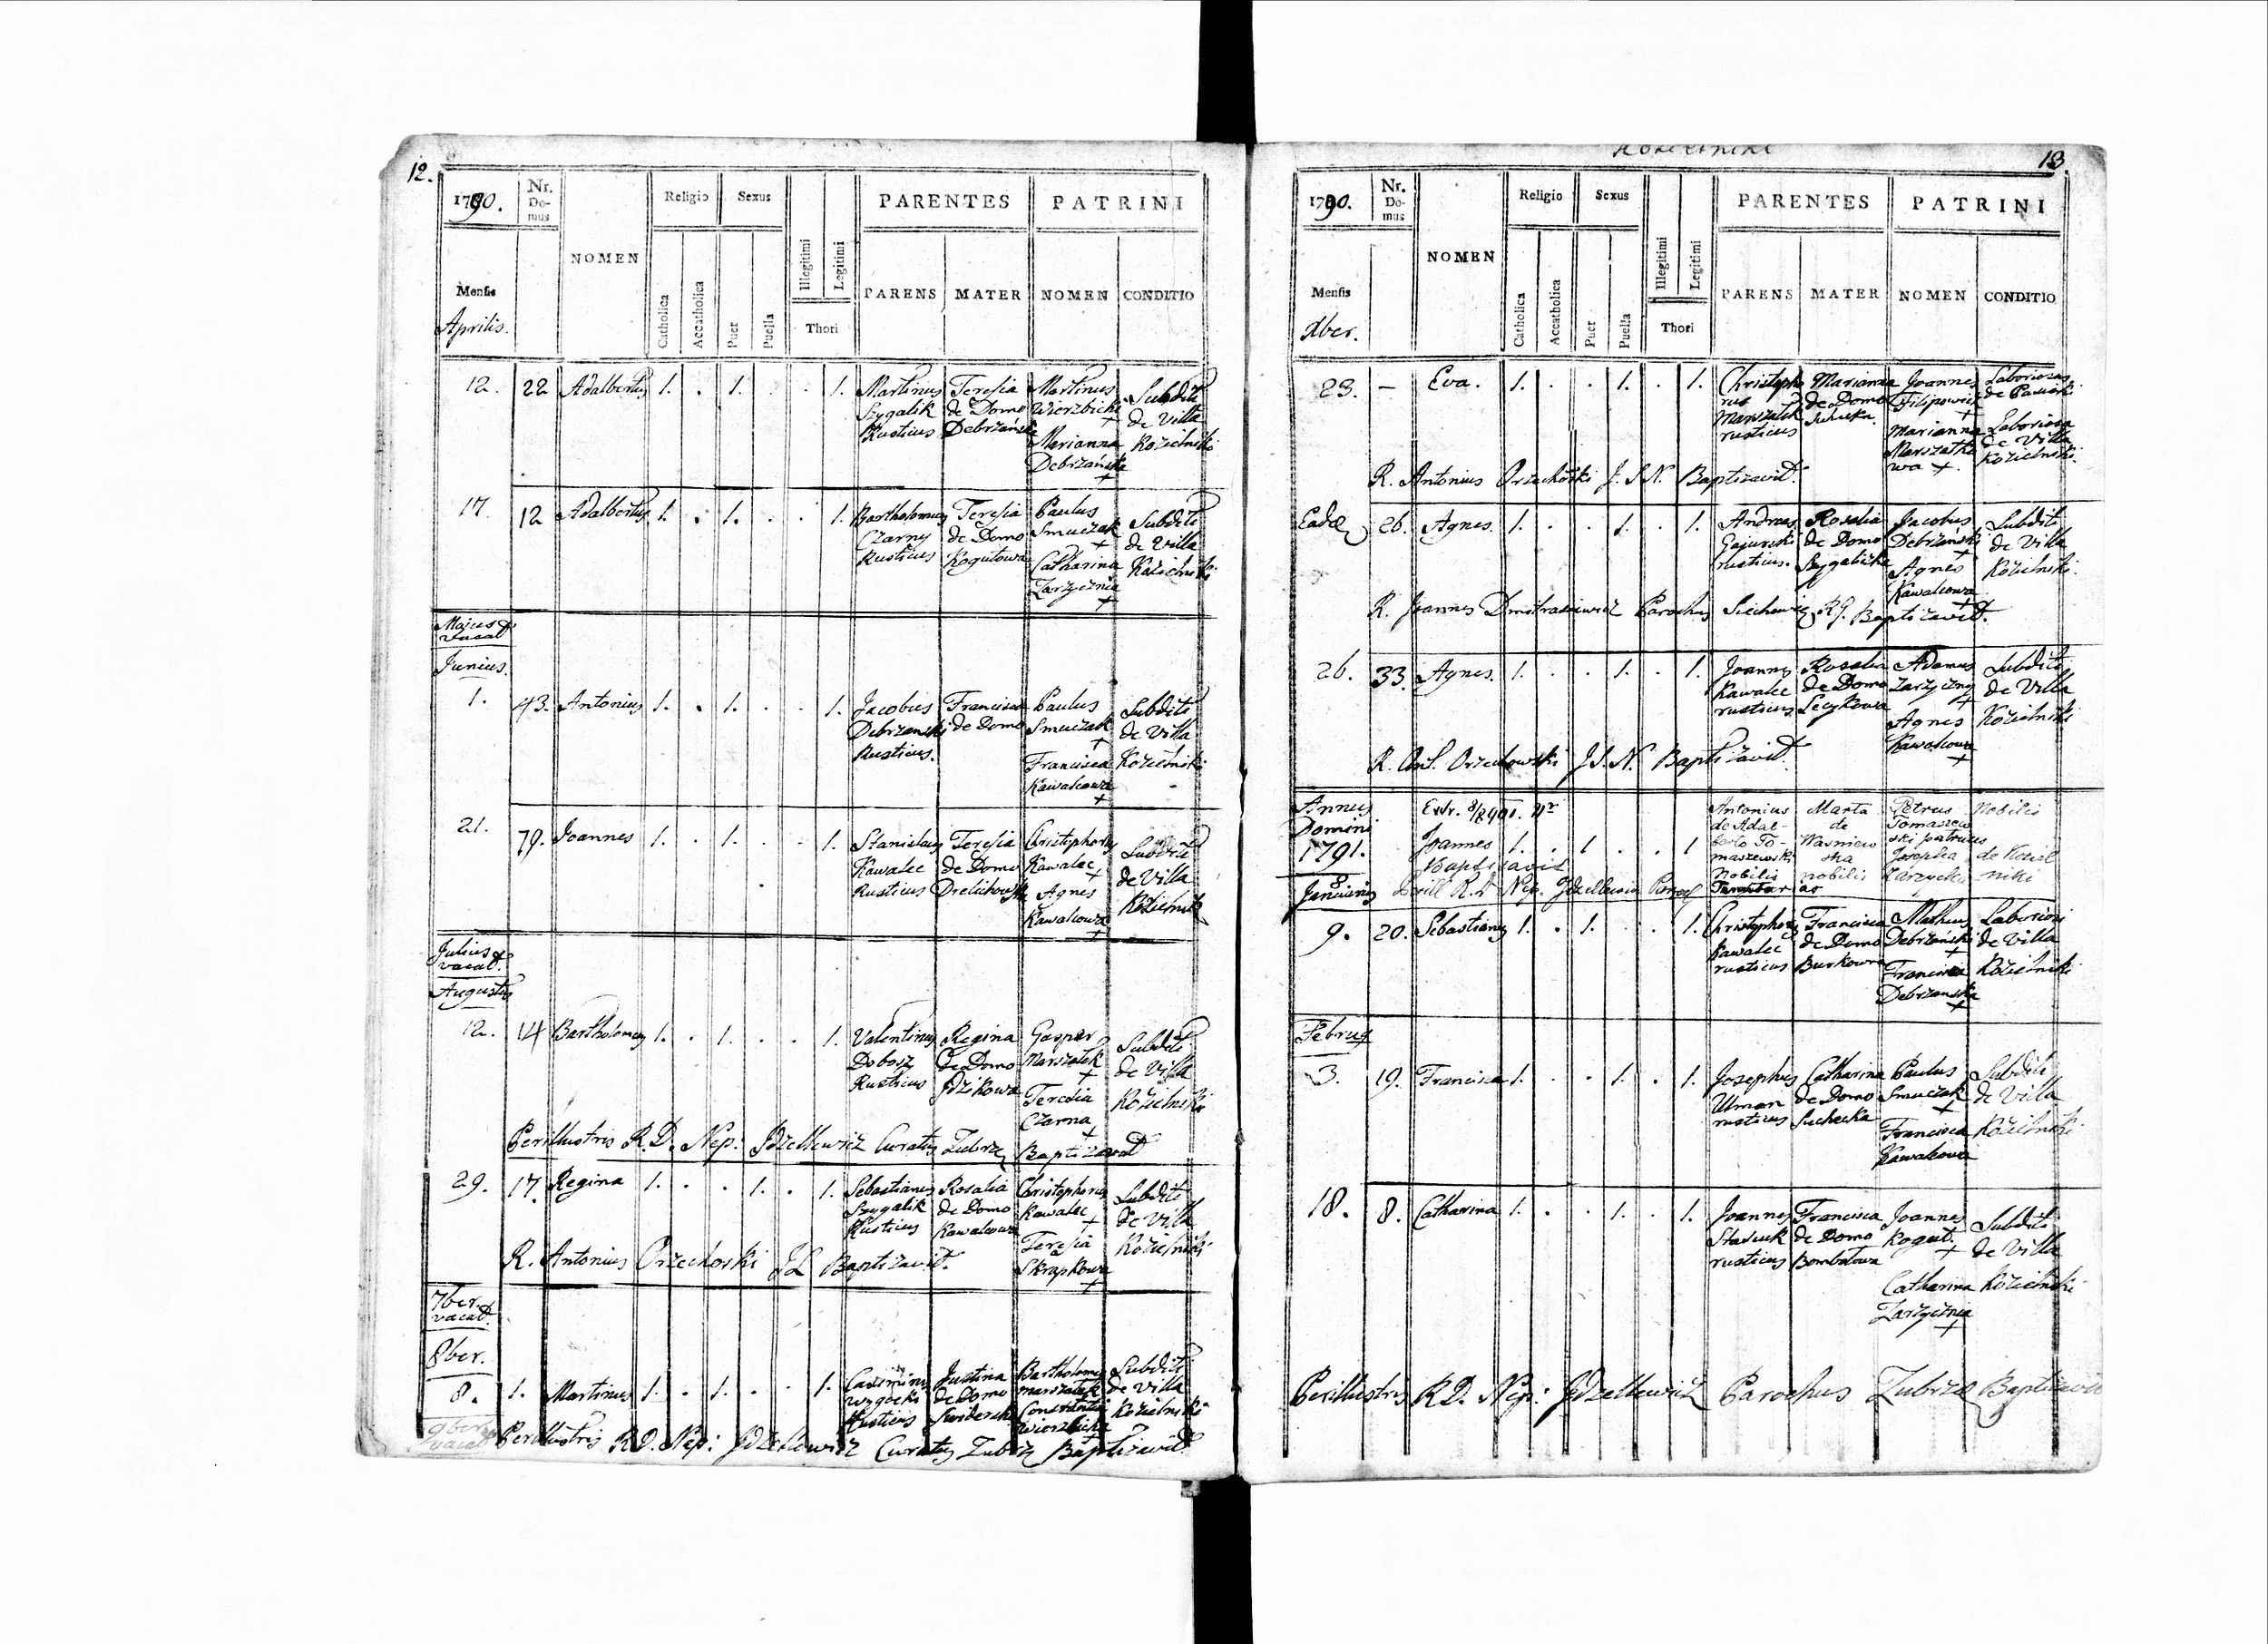 12.
1790.
Nr. Do- mus
NOMEN
Religio
Sexus
PARENTES
PATRINI
Mensis
Aprilis.
Catholica
Accatholica
Puer
Puella
Illegitimi
Legitimi
Thori
PARENS
MATER
NOMEN
CONDITIO
12. 22 Adalbertus 1. . 1. . . 1. Martinus Teresia Martinus Subditi
Szygalik de Domo Wierzbicki de Villa
Rusticus Debrzańska Marianna Kozielniki
Debrzańska
17. 12 Adalbertus 1. . 1. . . 1. Bartholomeus Teresia Paulus Subditi
Czarny de Domo Smuczak de Villa
Rusticus Kogutowa Catharina Kozielniki
Zarzycznia
Majus
vacat
Junius.
1. 43. Antonius 1. . 1. . . 1. Jacobus Francisca Paulus Subditi
Debrzanski de Domo Smuczak de Villa
Rusticus. Francisca Kozielniki
Kawalcowa
21. 79. Joannes 1. . 1. . . 1. Stanislaus Teresia Christophorus Subditi
Kawalec de Domo Kawalec de Villa
Rusticus Agnes Kozielniki
Kawalcowa
Julius
vacat.
Augustus
12. 14 Bartholomeus 1. . 1. . . 1. Valentinus Regina Gasper Subditi
Dobosz de Domo Marszałek de Villa
Rusticus Gdzikowa Teresia Kozielniki
Czarna
Perillustris R.D. Nep: Curatus Zubrze Baptizavit
29. 17. Regina 1. . . 1. . 1. Sebastianus Rosalia Christophorus Subditi
Szygalik de Domo Kawalec de Villa
Rusticus Kawalcowa Teresia Kozielniki
Skrapkowa
R. Antonius Orzechoski Baptizavit.
7ber.
vacat.
8ber.
8. 1. Martinus 1. . 1. . . 1. Casimirus Justina Bartholomeus Subditi
de Domo Marszałek de Villa
Rusticus Constantia Kozielniki
Wierzbicka
9ber
vacat
Perillustris R.D. Nep: Curatus Zubrze Baptizavit
13.
1790.
Nr. Do- mus
NOMEN
Religio
Sexus
PARENTES
PATRINI
Mensis
Xber.
Catholica
Accatholica
Puer
Puella
Illegitimi
Legitimi
Thori
PARENS
MATER
NOMEN
CONDITIO
23. – Eva. 1. . . 1. . 1. Christopho Marianna Joannes Laboriosus
rus de Domo Filipowicz de
Marszałek Marianna Laboriosa
rusticus Marszałko de Villa
wa Kozielniki.
R. Antonius Orzechoski J.S.N. Baptizavit.
Eadem 26. Agnes. 1. . . 1. . 1. Andreas Rosalia Jacobus Subditi
Gajurski de Domo Debrzański de Villa
rusticus. Szygalicka Agnes Kozielniki.
Kawalcowa
R. Joannes Parochus Baptizavit.
26. 33. Agnes. 1. . . 1. . 1. Joannes Rosalia Adamus Subditi
Kawalec de Domo Zarzyczny de Villa
rusticus Lecykowa Agnes Kozielniki
Kawalcowa
R. Ant. Orzechowski J.S.N. Baptizavit.
Annus
Domini
1791.
8
Januarius
Joannes 1. . 1 . . 1 Antonius Marta Petrus Nobilis
Baptisavit de Adal- de Tomaszew
berto To- Wasniew ski patruus de Koziel
maszewski ska Josepha niki
Nobilis nobilis Zarzycka
9. 20. Sebastianus 1. . 1. . . 1. Christophorus Francisca Matheus Laboriosi
Kawalec de Domo Debrzański de Villa
rusticus Burkowna Francisca Kozielniki
Debrzanska
Februs
3. 19. Francisca 1. . . 1. . 1. Josephus Catharina Paulus Subditi
Ulman de Domo Smuczak de Villa
rusticus Suchecka Francisca Kozielniki
Kawalcowa
18. 8. Catharina 1. . . 1. . 1. Joannes Francisca Joannes Subditi
Stasiuk de Domo Kogut. de Villa
rusticus Bombatowa Catharina Kozielniki
Zarzycznia
Perillustris R.D. Nep: Parochus Zubrze Baptizavit